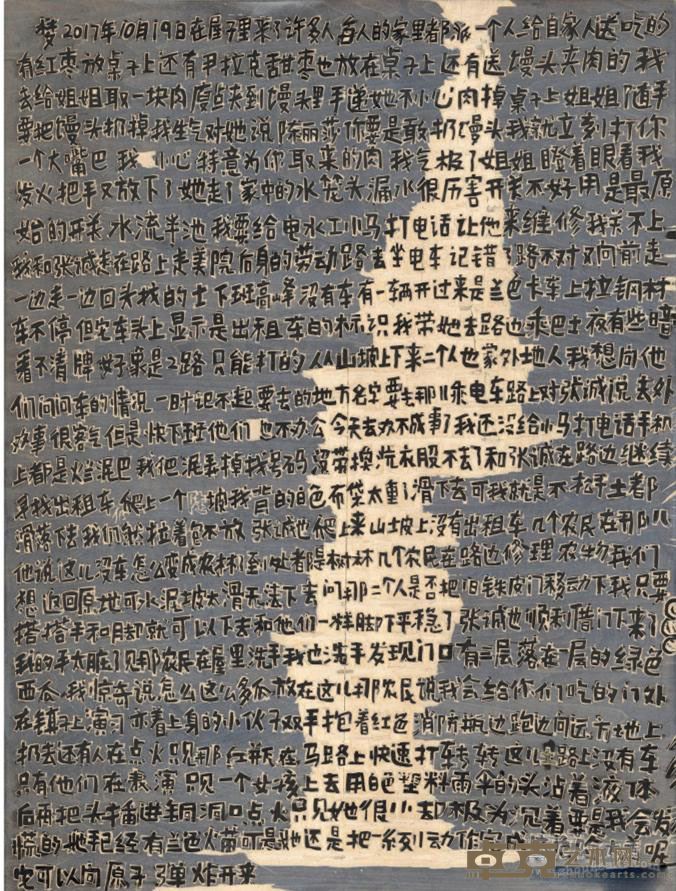 梦2017年10月19日在屋子里来了许多人每人的家里都派一个人给自家人送吃的
有红枣放桌子上还有伊拉克甜枣也放在桌子上还有送馒头夹肉的我
去给姐姐取一块肉原点夹到馒头里手递她不小心肉掉桌子上姐姐随手
要把馒头扔掉我生气对她说陈丽莎你要是敢扔馒头我就立刻打你
一个大嘴巴我小心特意为你取来的肉我气极了姐姐瞪着眼看我
发火把手又放下了她走了家中的水笼头漏水很历害开关不好用是最原
始的开关水流半池我要给电水工小马打电话让他来维修我关不上
我和张诚走在路上走美院后身的劳动路去坐电车记错了路不对又向前走
一边走一边回头找的士下班高峰没有车有一辆开过来是兰色卡车上拉钢材
车不停但它车头上显示是出租车的标识我带她去路边乘巴士夜有些暗
看不清牌好象是2路只能打的人从山坡上下来二个人也家外地人我想向他
们问问车的情况一时记不起要去的地方名字要去那儿乘电车路上对张诚说去外
办事很客气但是快下班他们也不办公今天去办不成事了我还没给小马打电话手机
上都是烂泥巴我把泥弄掉找号码没带换洗衣服不去了和张诚在路边继续
寻找出租车爬上一个陡坡我背的白色布袋太重了滑下去可我就是不松手土都
滑落下去我们紧拉着包不放张诚也爬上来山坡上没有出租车几个农民在那儿
他说这儿没车怎么变成农林了到处都是树林几个农民在路边修理农物我们
想返回原地可水泥坡太滑无法下去问那二个人是否把旧铁皮门移动下我只要
搭搭手和脚就可以下去和他们一样脚下平稳了张诚也顺利借门下来了
我的手太脏了见那农民在屋里洗手我也洗手发现门口有三层落在一层的绿色
西瓜我惊奇说怎么这么多瓜放在这儿那农民说我会给你们吃的门外
在镇子上演习赤着上身的小伙子双手抱着红色消防瓶边跑边向远方地上
扔去还有人在点火只见那红瓶在马路上快速打转转这儿路上没有车
只有他们在表演只见一个女孩上去用白色塑料雨伞的头沾着液体
后再把头插进铜洞口点火只见她很小却极为沉着要是我会发
慌的她手已经有兰色火苗可是她还是把一系列动作完成
它可以向原子弹炸开来